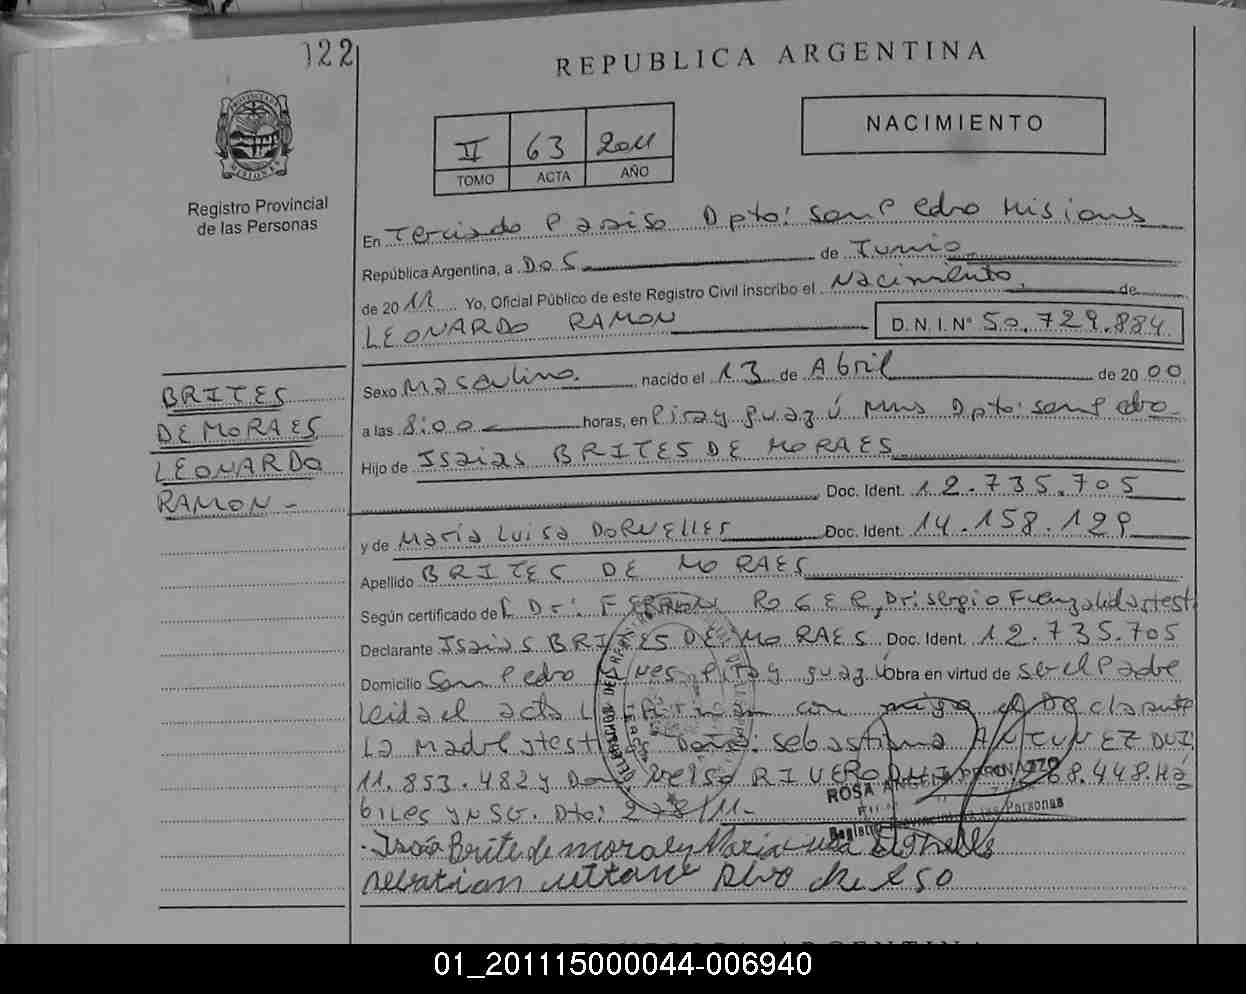 122
REPUBLICA ARGENTINA
II 63 2011
TOMO ACTA AÑO
NACIMIENTO
Registro Provincial
de las Personas
En Terciado Paraiso Dpto: San Pedro Misiones
República Argentina, a Dos de Junio
de 2011 Yo, Oficial Público de este Registro Civil inscribo el Nacimiento de
LEONARDO RAMON D.N.I. Nº 50.729.884
BRITES
DE MORAES
LEONARDO
RAMON-
Sexo Masculino nacido el 13 de Abril de 2000
a las 8:00 horas, en Piray guazú Mnes Dpto: San Pedro
Hijo de Isaias BRITES DE MORAES
Doc. Ident. 12.735.705
y de Maria Luisa DORNELLES Doc. Ident. 14.158.129
Apellido BRITES DE MORAES
Según certificado de Dr: ROGER, Dr: Sergio Fuenzalida y test
Declarante Isaias BRITES DE MORAES Doc. Ident. 12.735.705
Domicilio San Pedro Mnes Piray guazú Obra en virtud de ser el Padre
leida el acta la firman con migo el Declarante
La Madre y test Doña: Sebastiana ANTUNEZ DNI
11.853.482 y Don RIVERO DNI 268.448. Há
biles y NSC. Dto: 278/11.-
ROSA
Registro Provincial de las Personas
Brite de moraes Maria
01_201115000044-006940